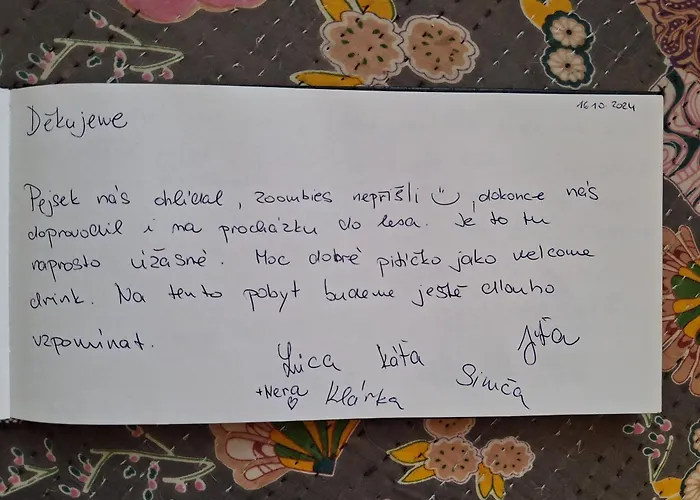 16.10.2024
Děkujeme
Pejsek nás ohlídal, zoombies nepříšli ☺, dokonce nás
doprovodil i na procházku do lesa. Je to tu
naprosto úžasné. Moc dobré pitíčko jako welcome
drink. Na tento pobyt budeme ještě dlouho
vzpomínat.
Lucca Káťa Jíťa
+Nera ♡ Klárka Simča